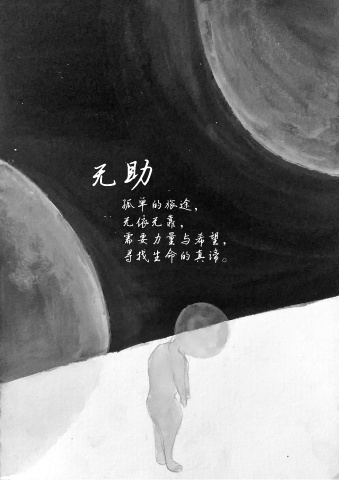 无助
孤单的旅途，
无依无靠，
需要力量与希望，
寻找生命的真谛。